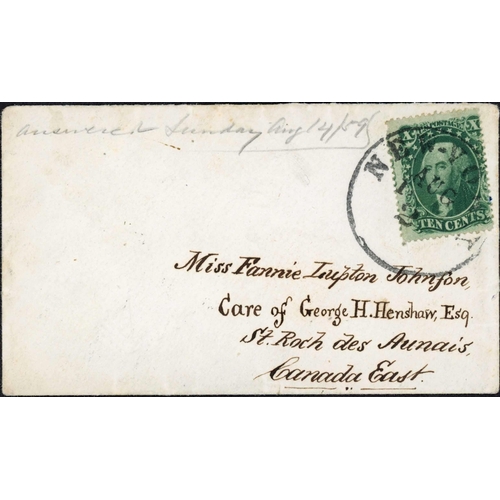 answered Sunday Aug 14/59
U.S. POSTAGE
X X
TEN CENTS
NEW-YO
Miss Fannie Lupton Johnson,
Care of George H. Henshaw, Esq.
St. Roch des Aunais,
Canada East.